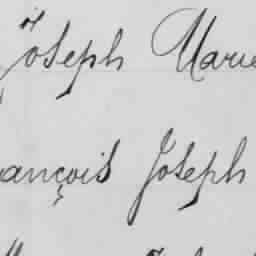 Joseph Marie
ançois Joseph